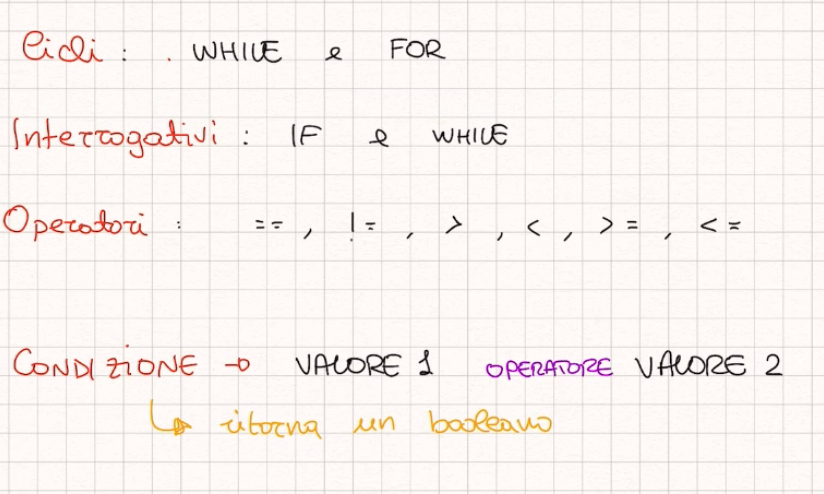 Cicli : . WHILE e FOR
Interrogativi : IF e WHILE
Operatori : == , != , > , < , >= , <=
CONDIZIONE → VALORE 1 OPERATORE VALORE 2
↳ ritorna un booleano